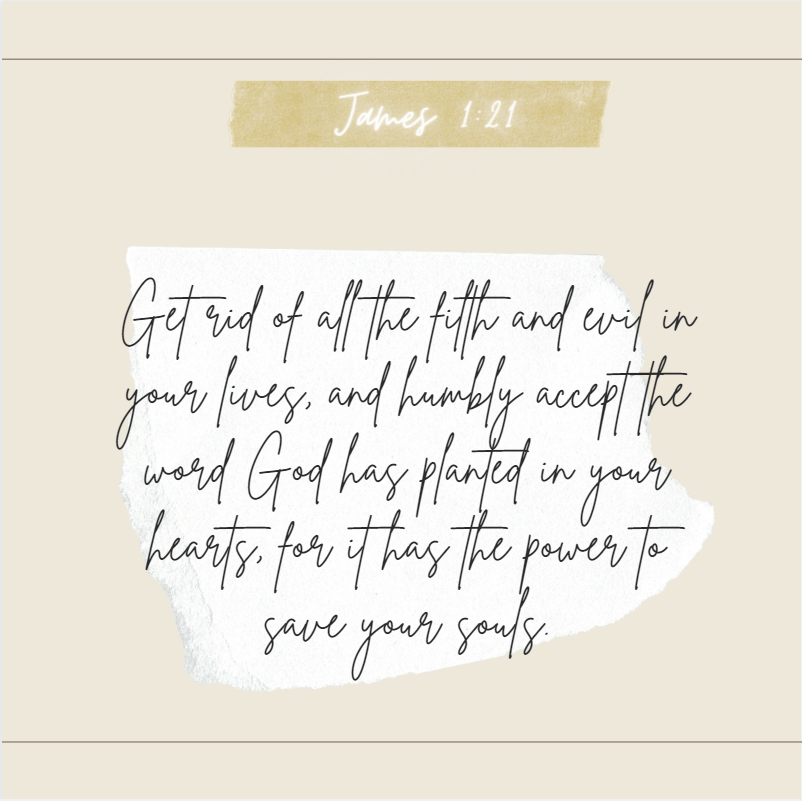 James 1:21
Get rid of all the filth and evil in
your lives, and humbly accept the
word God has planted in your
hearts, for it has the power to
save your souls.